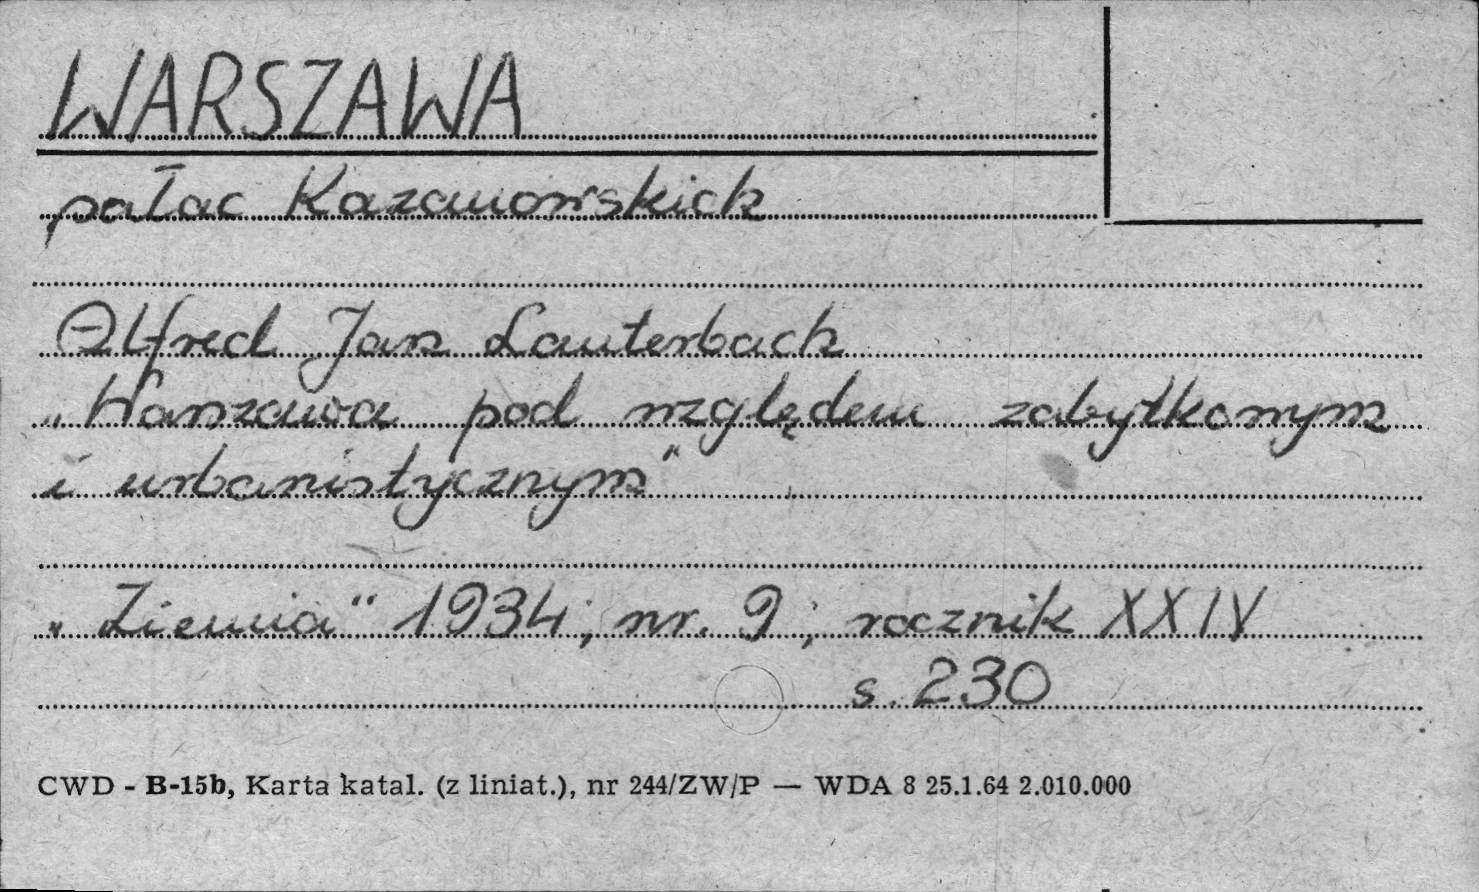 WARSZAWA
pałac Kazanowskich
Alfred Jan Lauterbach
„Warszawa pod względem zabytkowym
i urbanistycznym"
„Ziemia" 1934; nr. 9; rocznik XXIV
s. 230
CWD - B-15b, Karta katal. (z liniat.), nr 244/ZW/P — WDA 8 25.1.64 2.010.000